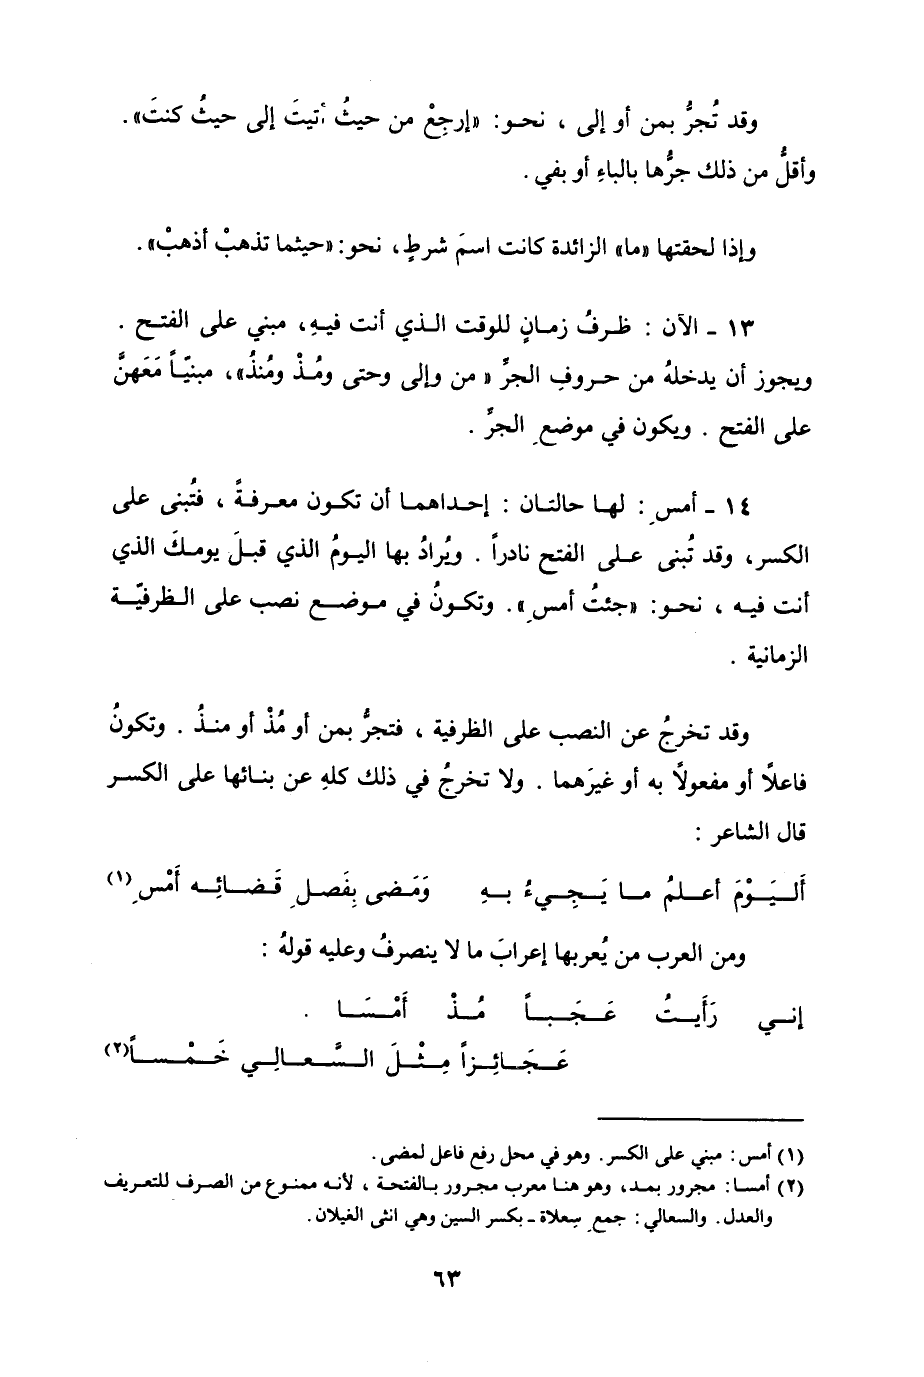 وقد تُجرُّ بمن أو إلى ، نحـو: «إرجِعْ من حيثُ أتيتَ إلى حيثُ كنتَ».
وأقلُّ من ذلك جرُّها بالباءِ أو بفي .
وإذا لحقتها «ما» الزائدة كانت اسمَ شرطٍ، نحو: «حيثما تذهبْ أذهبْ».
١٣ ـ الآن : ظـرفُ زمـانٍ للوقت الـذي أنت فيـهِ، مبني على الفتـح .
ويجوز أن يدخلهُ من حـروفِ الجرِّ « من وإلى وحتى ومُـذْ ومُنذُ»، مبنيّـاً مَعَهنَّ
على الفتح . ويكون في موضعِ الجرِّ .
١٤ ـ أمسِ : لهـا حالتـان : إحـداهمـا أن تكـون معـرفةً ، فتُبنى على
الكسر، وقد تُبنى علـى الفتح نادراً . ويُرادُ بها اليـومُ الذي قبلَ يومـكَ الذي
أنت فيـه ، نحـو: «جئتُ أمسِ». وتكـونُ في مـوضـع نصب على الـظرفيّـة
الزمانية .
وقد تخرجُ عن النصب على الظرفية ، فتجرُّ بمن أو مُذْ أو منـذُ . وتكونُ
فاعلًا أو مفعولًا به أو غيرَهما . ولا تخرجُ في ذلك كلهِ عن بنـائها على الكسـر
قال الشاعر :
أَلـيَـوْمَ أعـلمُ مـا يَـجِـيءُ بـهِ    وَمَـضى بِفَصـلِ قَـضـائِـه أَمْسِ(١)
ومن العرب من يُعربها إعرابَ ما لا ينصرفُ وعليه قولهُ :
إنـي رَأَيـتُ عَـجَـبـاً مُـذْ أَمْـسَـا .
عَـجَـائِـزاً مِـثْـلَ الـسَّـعـالِـي خَـمْـسـاً(٢)
(١) أمس: مبني على الكسر. وهو في محل رفع فاعل لمضى.
(٢) أمسـا: مجرور بمـذ، وهو هنـا معرب مجـرور بـالفتحـة ، لأنـه ممنـوع من الصـرف للتعـريف
والعدل. والسعالي: جمع سِعلاة ـ بكسر السين وهي انثى الغيلان.
٦٣